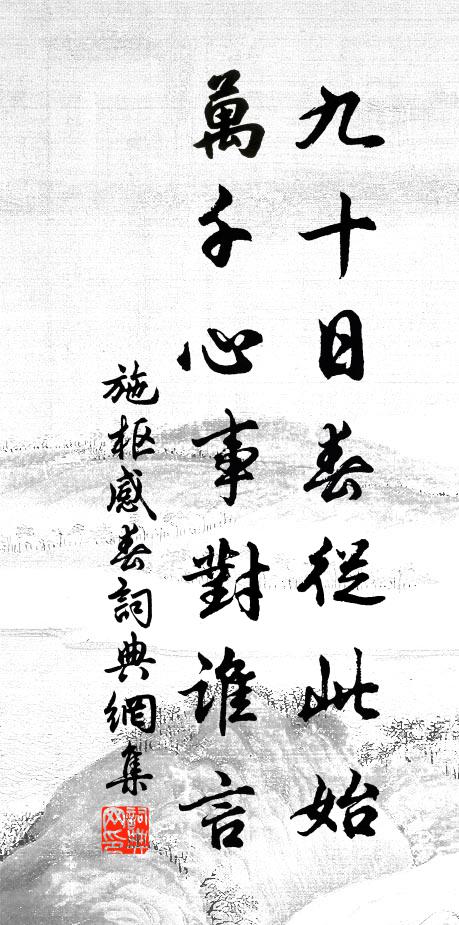 九十日春從此始
萬千心事對誰言
施枢感春詞典網集
詞典网印